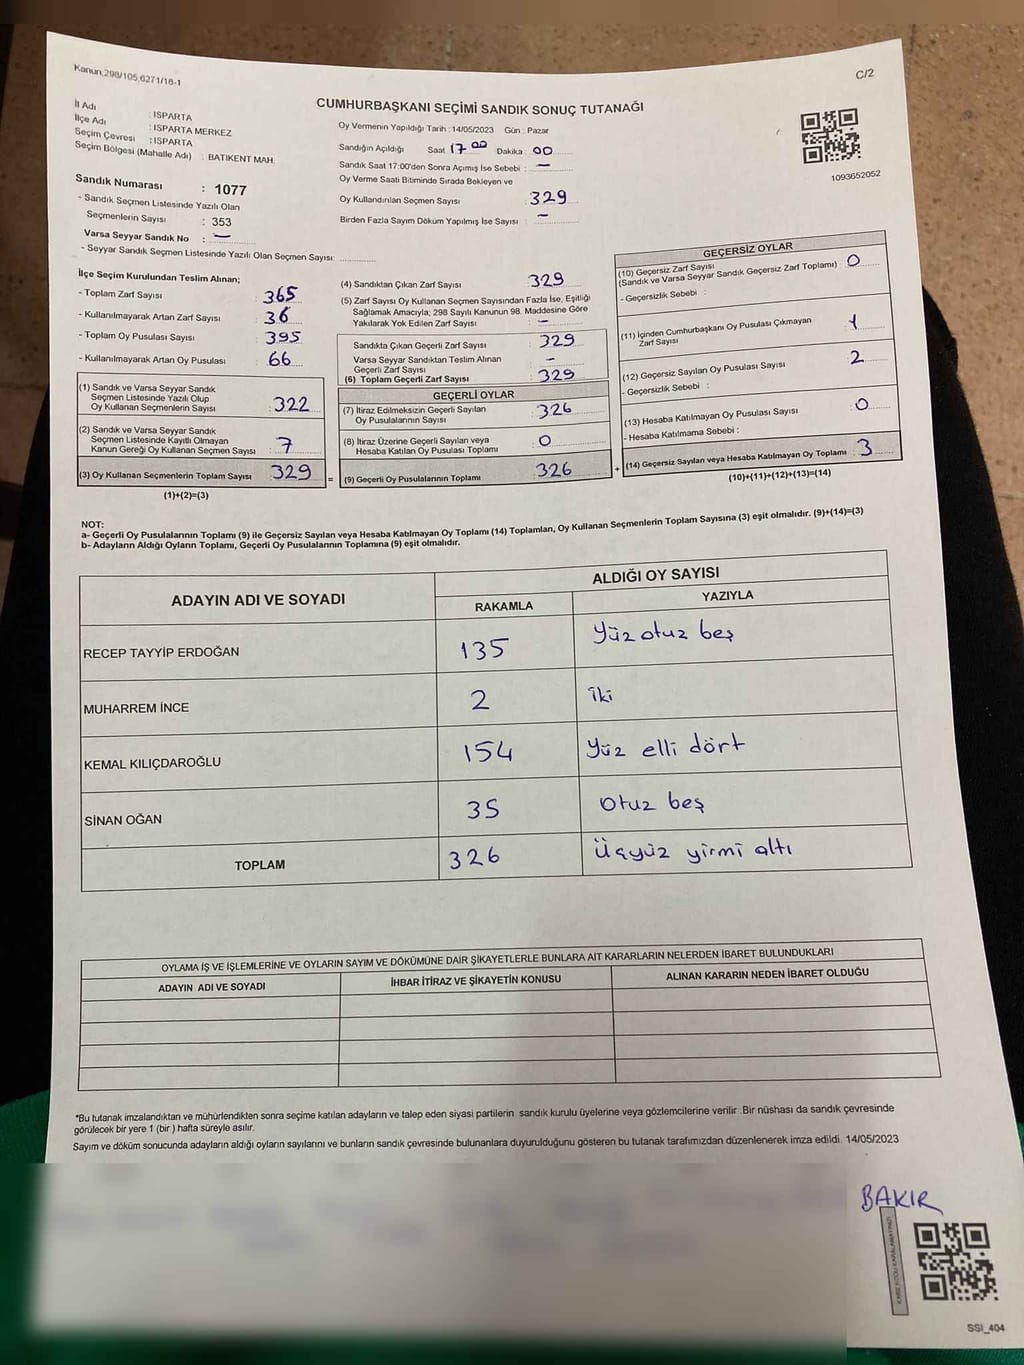 Kanun,298/105,6271/18-1
C/2
CUMHURBAŞKANI SEÇİMİ SANDIK SONUÇ TUTANAĞI
İl Adı : ISPARTA
İlçe Adı : ISPARTA MERKEZ
Seçim Çevresi : ISPARTA
Seçim Bölgesi (Mahalle Adı) : BATIKENT MAH.
Sandık Numarası : 1077
- Sandık Seçmen Listesinde Yazılı Olan
Seçmenlerin Sayısı : 353
Varsa Seyyar Sandık No : —
- Seyyar Sandık Seçmen Listesinde Yazılı Olan Seçmen Sayısı:
Oy Vermenin Yapıldığı Tarih : 14/05/2023 Gün : Pazar
Sandığın Açıldığı Saat 17 00 Dakika : 00
Sandık Saat 17:00'den Sonra Açımış İse Sebebi : —
Oy Verme Saati Bitiminde Sırada Bekleyen ve
Oy Kullandırılan Seçmen Sayısı : 329
Birden Fazla Sayım Döküm Yapılmış İse Sayısı : —
1093652052
İlçe Seçim Kurulundan Teslim Alınan;
- Toplam Zarf Sayısı : 365
- Kullanılmayarak Artan Zarf Sayısı : 36
- Toplam Oy Pusulası Sayısı : 395
- Kullanılmayarak Artan Oy Pusulası : 66
(1) Sandık ve Varsa Seyyar Sandık
Seçmen Listesinde Yazılı Olup
Oy Kullanan Seçmenlerin Sayısı : 322
(2) Sandık ve Varsa Seyyar Sandık
Seçmen Listesinde Kayıtlı Olmayan
Kanun Gereği Oy Kullanan Seçmen Sayısı : 7
(3) Oy Kullanan Seçmenlerin Toplam Sayısı : 329
(1)+(2)=(3)
=
(4) Sandıktan Çıkan Zarf Sayısı : 329
(5) Zarf Sayısı Oy Kullanan Seçmen Sayısından Fazla İse, Eşitliği
Sağlamak Amacıyla; 298 Sayılı Kanunun 98. Maddesine Göre
Yakılarak Yok Edilen Zarf Sayısı : —
Sandıkta Çıkan Geçerli Zarf Sayısı : 329
Varsa Seyyar Sandıktan Teslim Alınan
Geçerli Zarf Sayısı : —
(6) Toplam Geçerli Zarf Sayısı : 329
GEÇERLİ OYLAR
(7) İtiraz Edilmeksizin Geçerli Sayılan
Oy Pusulalarının Sayısı : 326
(8) İtiraz Üzerine Geçerli Sayılan veya
Hesaba Katılan Oy Pusulası Toplamı : 0
(9) Geçerli Oy Pusulalarının Toplamı : 326
+
GEÇERSİZ OYLAR
(10) Geçersiz Zarf Sayısı
(Sandık ve Varsa Seyyar Sandık Geçersiz Zarf Toplamı) : 0
- Geçersizlik Sebebi :
(11) İçinden Cumhurbaşkanı Oy Pusulası Çıkmayan
Zarf Sayısı : 1
(12) Geçersiz Sayılan Oy Pusulası Sayısı : 2
- Geçersizlik Sebebi :
(13) Hesaba Katılmayan Oy Pusulası Sayısı : 0
- Hesaba Katılmama Sebebi :
(14) Geçersiz Sayılan veya Hesaba Katılmayan Oy Toplamı : 3
(10)+(11)+(12)+(13)=(14)
NOT:
a- Geçerli Oy Pusulalarının Toplamı (9) ile Geçersiz Sayılan veya Hesaba Katılmayan Oy Toplamı (14) Toplamları, Oy Kullanan Seçmenlerin Toplam Sayısına (3) eşit olmalıdır. (9)+(14)=(3)
b- Adayların Aldığı Oyların Toplamı, Geçerli Oy Pusulalarının Toplamına (9) eşit olmalıdır.
ADAYIN ADI VE SOYADI ALDIĞI OY SAYISI
RAKAMLA YAZIYLA
RECEP TAYYİP ERDOĞAN 135 Yüz otuz beş
MUHARREM İNCE 2 iki
KEMAL KILIÇDAROĞLU 154 Yüz elli dört
SİNAN OĞAN 35 Otuz beş
TOPLAM 326 Üçyüz yirmi altı
OYLAMA İŞ VE İŞLEMLERİNE VE OYLARIN SAYIM VE DÖKÜMÜNE DAİR ŞİKAYETLERLE BUNLARA AİT KARARLARIN NELERDEN İBARET BULUNDUKLARI
ADAYIN ADI VE SOYADI İHBAR İTİRAZ VE ŞİKAYETİN KONUSU ALINAN KARARIN NEDEN İBARET OLDUĞU
*Bu tutanak imzalandıktan ve mühürlendikten sonra seçime katılan adayların ve talep eden siyasi partilerin sandık kurulu üyelerine veya gözlemcilerine verilir .Bir nüshası da sandık çevresinde
görülecek bir yere 1 (bir ) hafta süreyle asılır.
Sayım ve döküm sonucunda adayların aldığı oyların sayılarını ve bunların sandık çevresinde bulunanlara duyurulduğunu gösteren bu tutanak tarafımızdan düzenlenerek imza edildi. 14/05/2023
BAKIR
SSI_404